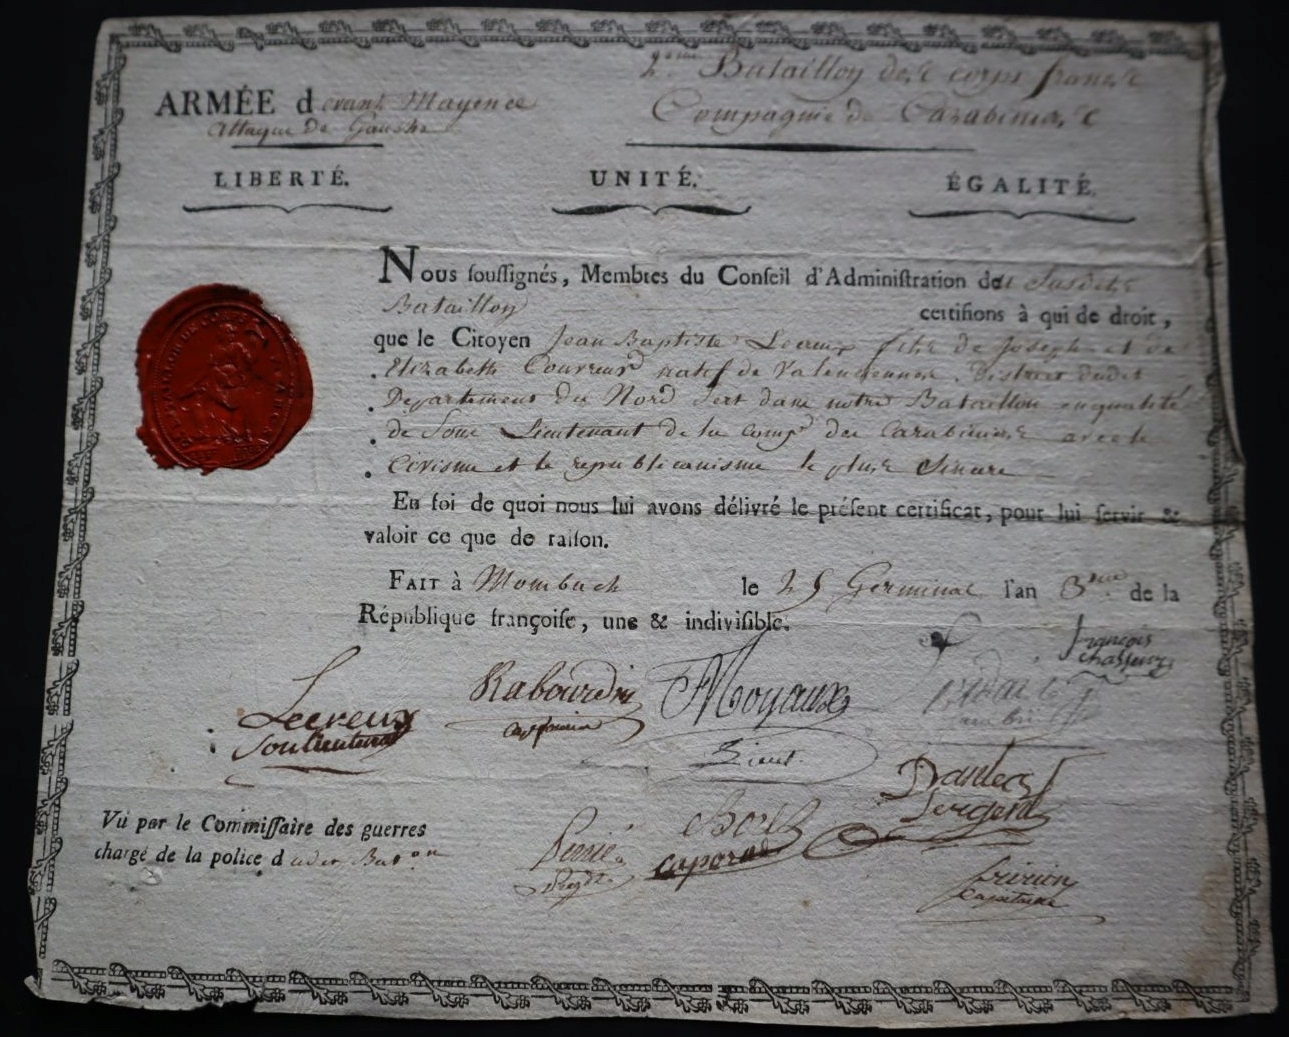 2eme Bataillon des corps francs
ARMÉE devant Mayence
Compagnie de Carabiniers
attaque de Gauche
LIBERTÉ. UNITÉ. ÉGALITÉ.
Nous souſſignés, Membres du Conſeil d'Adminiſtration du Susdit
Bataillon certifions à qui de droit,
que le Citoyen Jean Baptiste Lecreux fils de Joseph et de
Elizabeth Couvreur natif de Valenciennes District dudit
Departement du Nord sert dans notre Bataillon en qualité
de Sous Lieutenant de la comp. des Carabiniers avec le
Civisme et le republicanisme le plus Sincere
En foi de quoi nous lui avons délivré le préſent certificat, pour lui ſervir &
valoir ce que de raiſon.
FAIT à Mombach le 25 Germinal l'an 3me de la
République françoiſe, une & indiviſible.
francois
chasseur
Lecreux
Soulieutenant
Rabourdin
capitaine
Moyaux
Lieut.
Danten
Sergent
caporal
capitaine
Vu par le Commiſſaire des guerres
chargé de la police dudit Baton